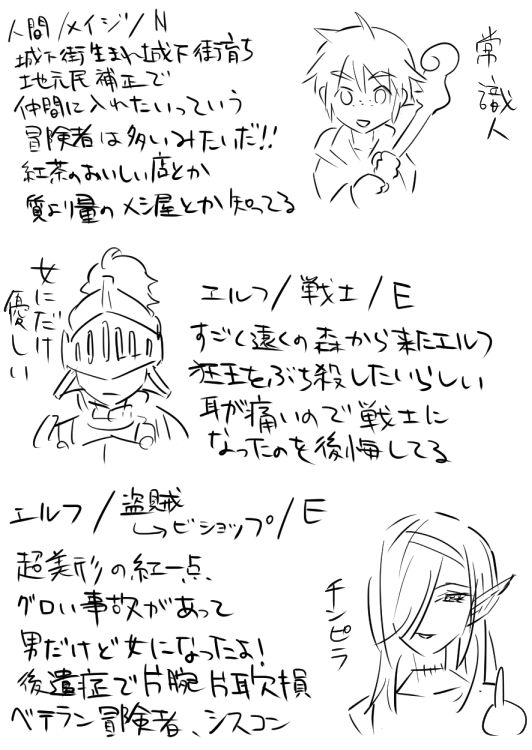 人間/メイジ/N
城下街生まれ城下街育ち
地元民補正で
仲間に入れたいっていう
冒険者は多いみたいだ!!
紅茶のおいしい店とか
質より量のメシ屋とか知ってる
常識人
女にだけ
優しい
エルフ/戦士/E
すごく遠くの森から来たエルフ
狂王をぶち殺したいらしい
耳が痛いので戦士に
なったのを後悔してる
エルフ/盗賊
→ビショップ/E
超美形の紅一点、
グロい事故があって
男だけど女になったよ!
後遺症で片腕片耳欠損
ベテラン冒険者、シスコン
チンピラ